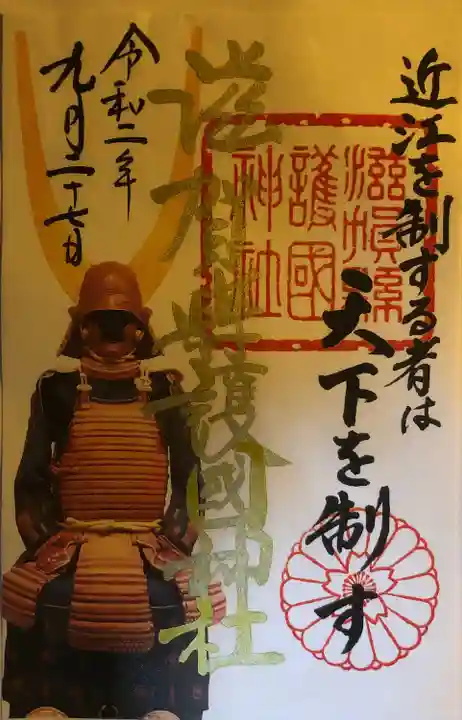 近江を制する者は
天下を制す
滋賀縣
護國
神社
滋賀県護國神社
令和二年
九月二十七日